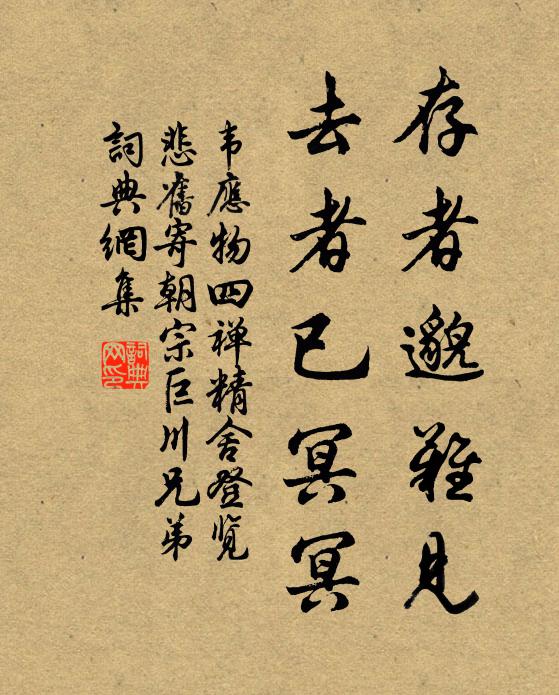 存者邈難見
去者已冥冥
韦應物四禅精舍登览
悲舊寄朝宗巨川兄弟
詞典網集
詞典
网印